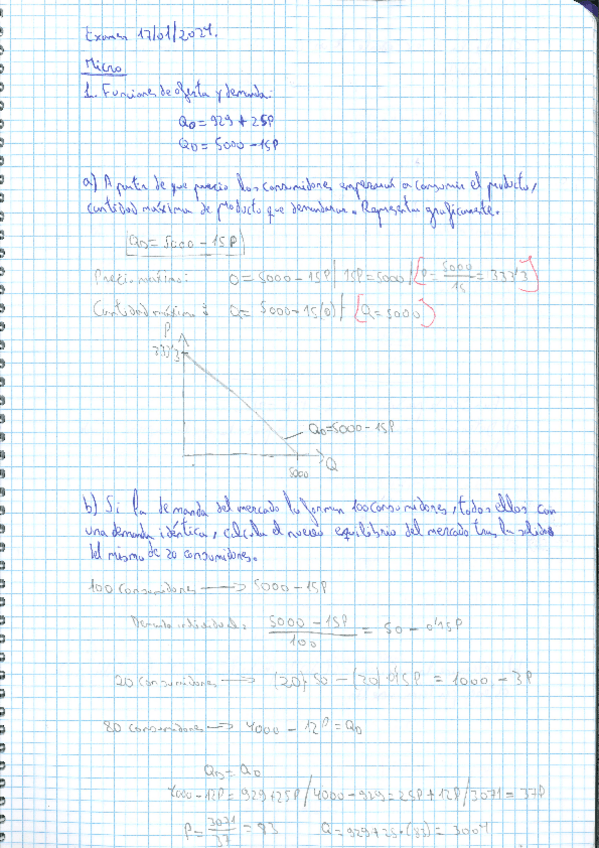 Examen 17/01/2024.
Micro
1. Funciones de oferta y demanda:
Qo = 929 + 25P
QD = 5000 - 15P
a) A partir de que precio los consumidores empezarán a consumir el producto,
cantidad máxima de producto que demandaran. Representar graficamente.
QD = 5000 - 15P
Precio máximo: 0 = 5000 - 15P / 15P = 5000 / [P = 5000/15 = 333'3]
Cantidad máxima: Q = 5000 - 15(0) / [Q = 5000]
P
333'3
QD = 5000 - 15P
5000 Q
b) Si la demanda del mercado la forman 100 consumidores, todos ellos con
una demanda idéntica, calcula el nuevo equilibrio del mercado tras la salida
del mismo de 20 consumidores.
100 consumidores → 5000 - 15P
Demanda individual: 5000 - 15P / 100 = 50 - 0'15P
20 consumidores → (20) 50 - (20) 0'15P = 1000 - 3P
80 consumidores → 4000 - 12P = QD
QD = Qo
4000 - 12P = 929 + 25P / 4000 - 929 = 25P + 12P / 3071 = 37P
P = 3071/37 = 83 Q = 929 + 25·(83) = 3004